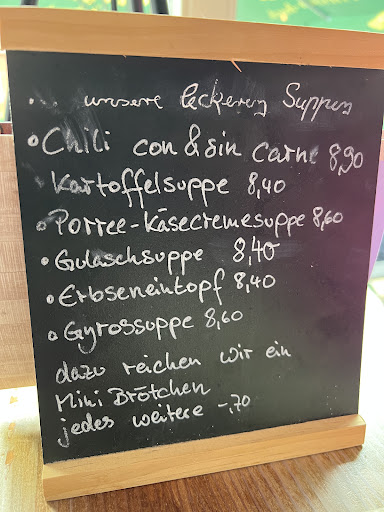 ... unsere leckeren Suppen
• Chili con & sin carne 8,90
• Kartoffelsuppe 8,40
• Porree-Käsecremesuppe 8,60
• Gulaschsuppe 8,40
• Erbseneintopf 8,40
• Gyrossuppe 8,60
dazu reichen wir ein
Mini Brötchen
jedes weitere -,70